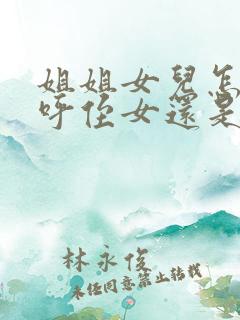 姐姐女兒怎
呼侄女還是
林永俊
未任同意禁止轉載